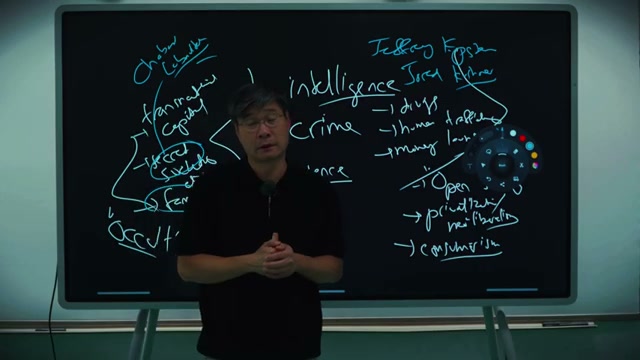 Chabad
transnational
capital
secret
societies
Occult
intelligence
crime
Jeffrey Epstein
Jared Kushner
→ drugs
→ human trafficking
→ money
→ Open
→ privatization
neoliberalism
→ consumerism